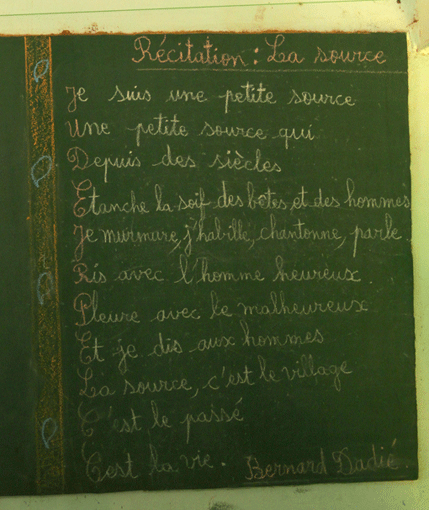 Récitation : La source
Je suis une petite source
Une petite source qui
Depuis des siècles
Etanche la soif des bêtes et des hommes
Je murmure, j'habille, chantonne, parle
Ris avec l'homme heureux
Pleure avec le malheureux
Et je dis aux hommes
La source, c'est le village
C'est le passé
C'est la vie. Bernard Dadié.